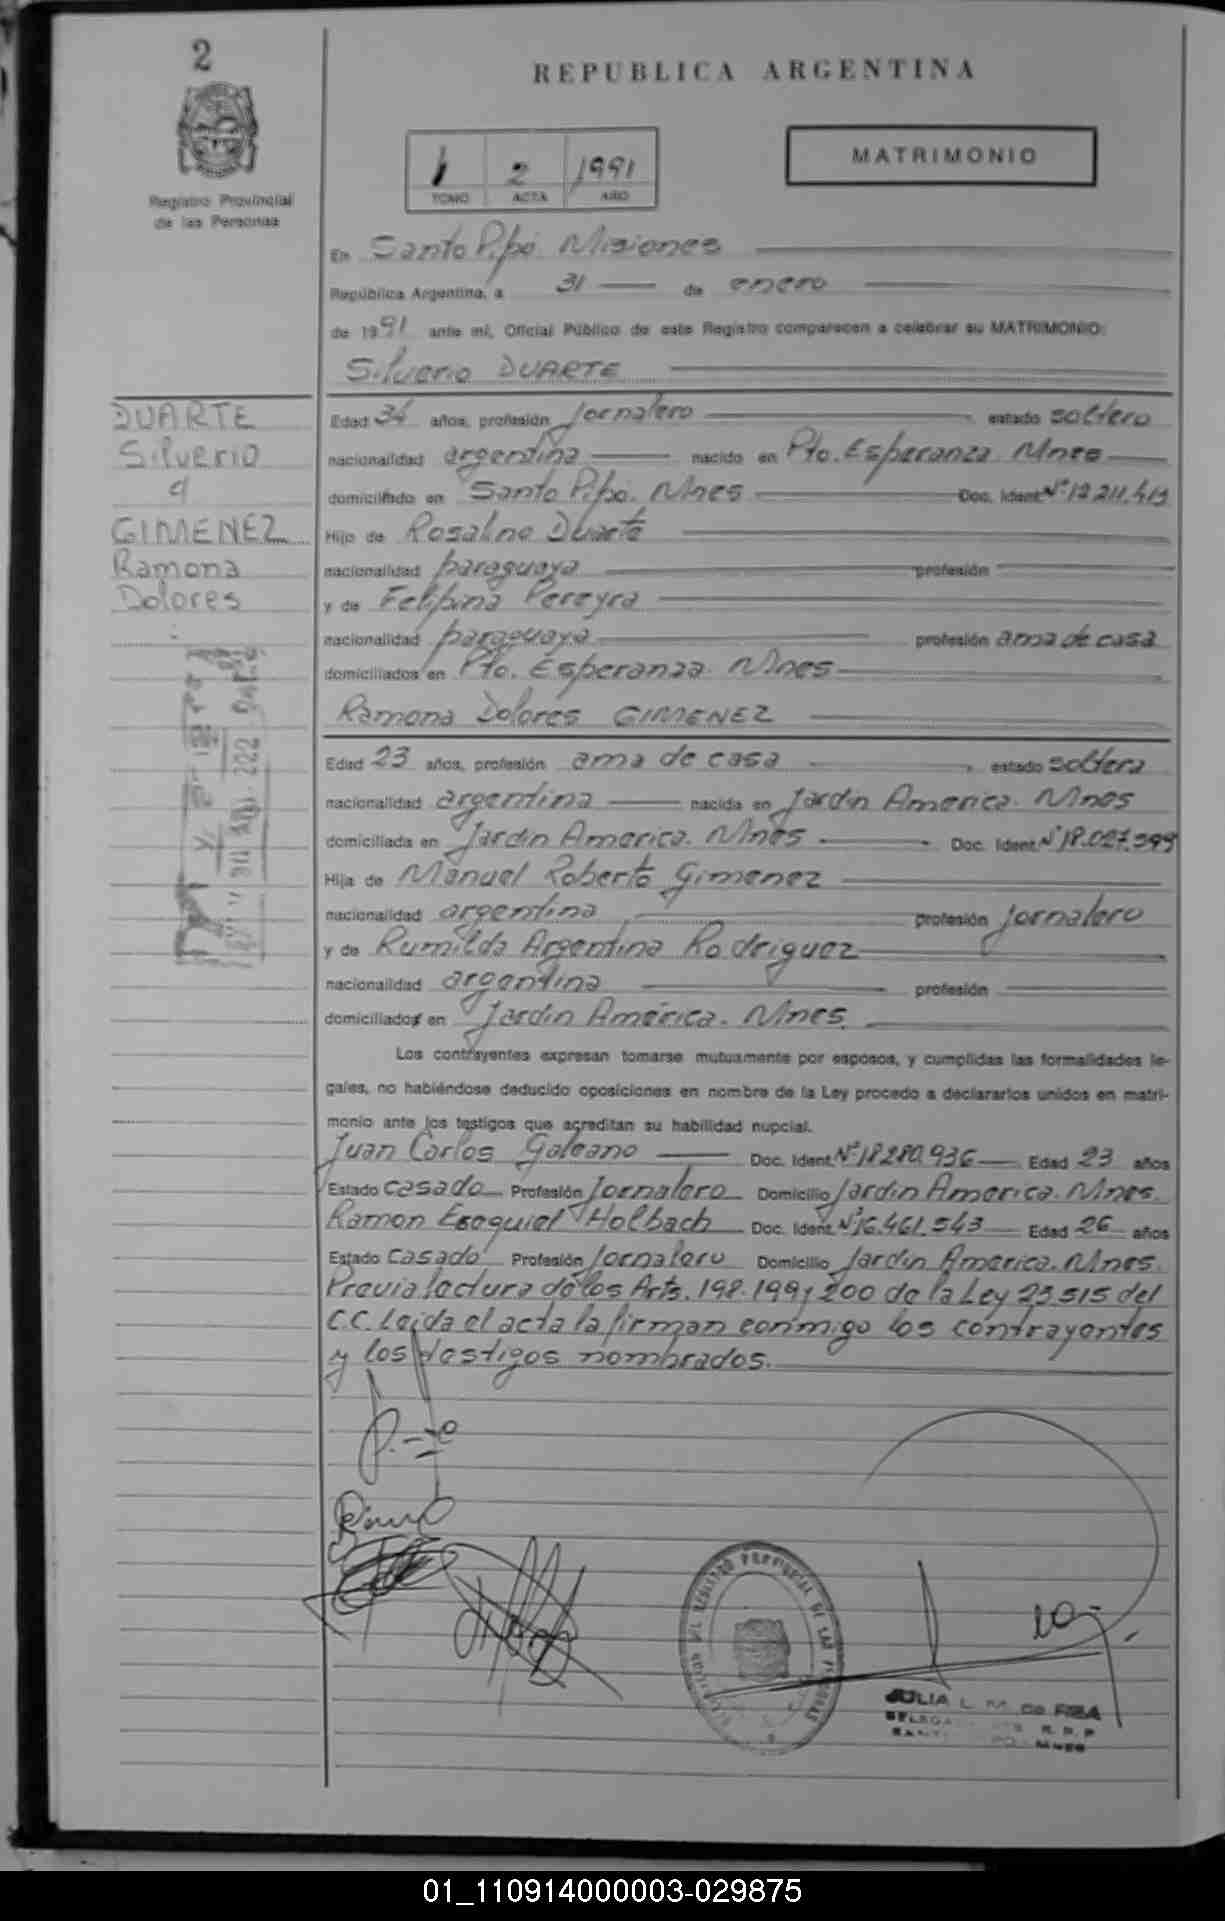 2
REPUBLICA ARGENTINA
Registro Provincial
de las Personas
1 2 1991
TOMO ACTA AÑO
MATRIMONIO
En Santo Pipó. Misiones
República Argentina, a 31 de enero
de 1991 ante mí, Oficial Público de este Registro comparecen a celebrar su MATRIMONIO:
Silverio DUARTE
DUARTE
Silverio
GIMENEZ
Ramona
Dolores
Edad 34 años, profesión jornalero estado soltero
nacionalidad argentina nacido en Pto. Esperanza. Mnes
domiciliado en Santo Pipó. Mnes Doc. Ident. Nº 12.211.419
Hijo de Rosalino Duarte
nacionalidad paraguaya profesión
y de Felipina Pereyra
nacionalidad paraguaya profesión ama de casa
domiciliados en Pto. Esperanza. Mnes
Ramona Dolores GIMENEZ
Edad 23 años, profesión ama de casa estado soltera
nacionalidad argentina nacida en Jardín America. Mnes
domiciliada en Jardín America. Mnes Doc. Ident. Nº 18.027.399
Hija de Manuel Roberto Gimenez
nacionalidad argentina profesión jornalero
y de Rumilda Argentina Rodriguez
nacionalidad argentina profesión
domiciliados en Jardín América. Mnes.
Los contrayentes expresan tomarse mutuamente por esposos, y cumplidas las formalidades le-
gales, no habiéndose deducido oposiciones en nombre de la Ley procedo a declararlos unidos en matri-
monio ante los testigos que acreditan su habilidad nupcial.
Juan Carlos Galeano Doc. Ident. Nº 18.280.936 Edad 23 años
Estado casado Profesión jornalero Domicilio Jardín America. Mnes.
Ramon Esequiel Holbach Doc. Ident. Nº 16.461.543 Edad 26 años
Estado casado Profesión jornalero Domicilio Jardín America. Mnes.
Previa lectura de los Arts. 198. 199 y 200 de la Ley 23.515 del
C.C. Leida el acta la firman conmigo los contrayentes
y los testigos nombrados.
REGISTRO PROVINCIAL DE LAS PERSONAS
JULIA L. M. de REA
R. P. P.
MNES
01_110914000003-029875